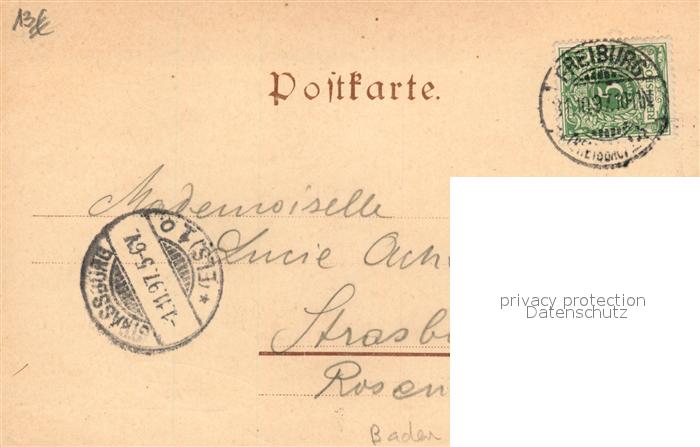 13€
Postkarte.
FREIBURG
31.10.97.10-11N
5
REICHSPOST
Mademoiselle
Lucie Ach
Strasb
Rosen
Baden
STRASSBURG
-1.11.97.5-6V.
* (ELS) 1 o.
privacy protection
Datenschutz